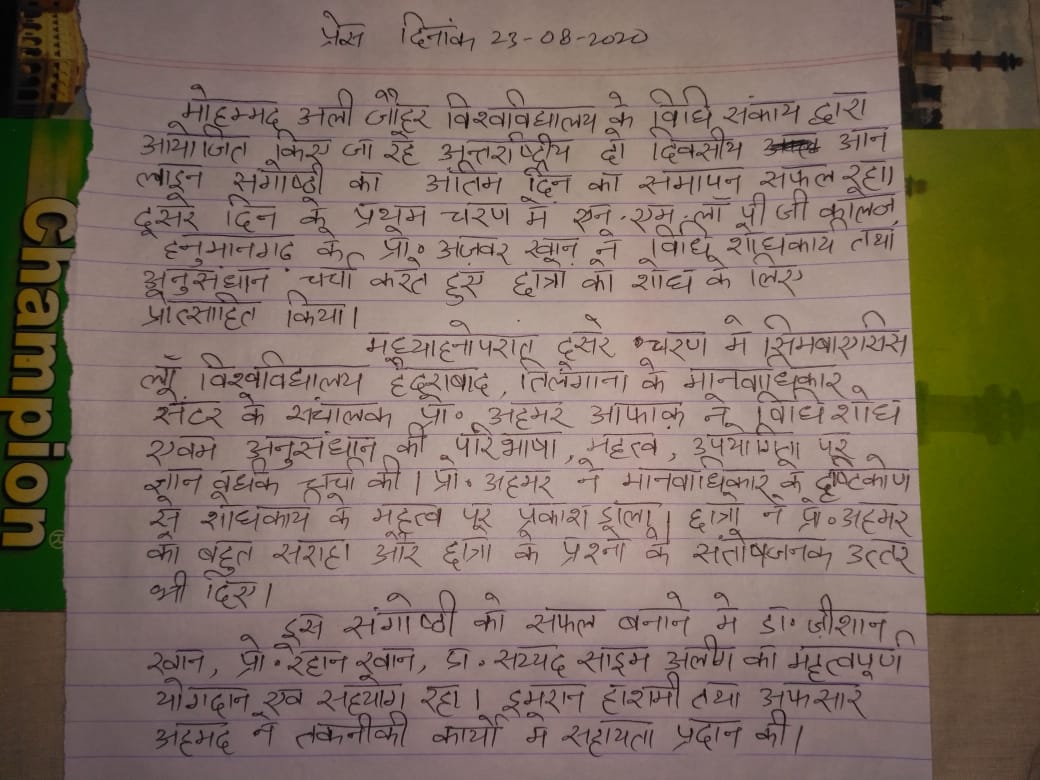 प्रेस दिनांक 23-08-2020
मोहम्मद अली जौहर विश्वविद्यालय के विधि संकाय द्वारा
आयोजित किए जा रहे अन्तर्राष्ट्रीय दो दिवसीय आन
लाइन संगोष्ठी का अंतिम दिन का समापन सफल रहा।
दूसरे दिन के प्रथम चरण में एन. एम. लॉ पी जी कॉलेज
हनुमानगढ़ के प्रो. अनवर खान ने विधि शोधकार्य तथा
अनुसंधान चर्चा करते हुए छात्रों को शोध के लिए
प्रोत्साहित किया।
मध्याहनोपरांत दूसरे चरण मे सिमबाएसिस
लॉ विश्वविद्यालय हैदराबाद, तिलंगाना के मानवाधिकार
सेंटर के संचालक प्रो. अहमर आफाक़ ने विधि शोध
एवम अनुसंधान की परिभाषा, महत्व, उपयोगिता पर
ज्ञान वर्धक चर्चा की। प्रो. अहमर ने मानवाधिकार के दृष्टिकोण
से शोधकार्य के महत्व पर प्रकाश डाला। छात्रों ने प्रो. अहमर
को बहुत सराहा और छात्रों के प्रश्नो के संतोषजनक उत्तर
भी दिए।
इस संगोष्ठी को सफल बनाने मे डा. ज़ीशान
खान, प्रो. रेहान खान, डा. सय्यद साइम अलीग का महत्वपूर्ण
योगदान एवं सहयोग रहा। इमरान हाशमी तथा अफसार
अहमद ने तकनीकी कार्यो मे सहायता प्रदान की।
Champion®